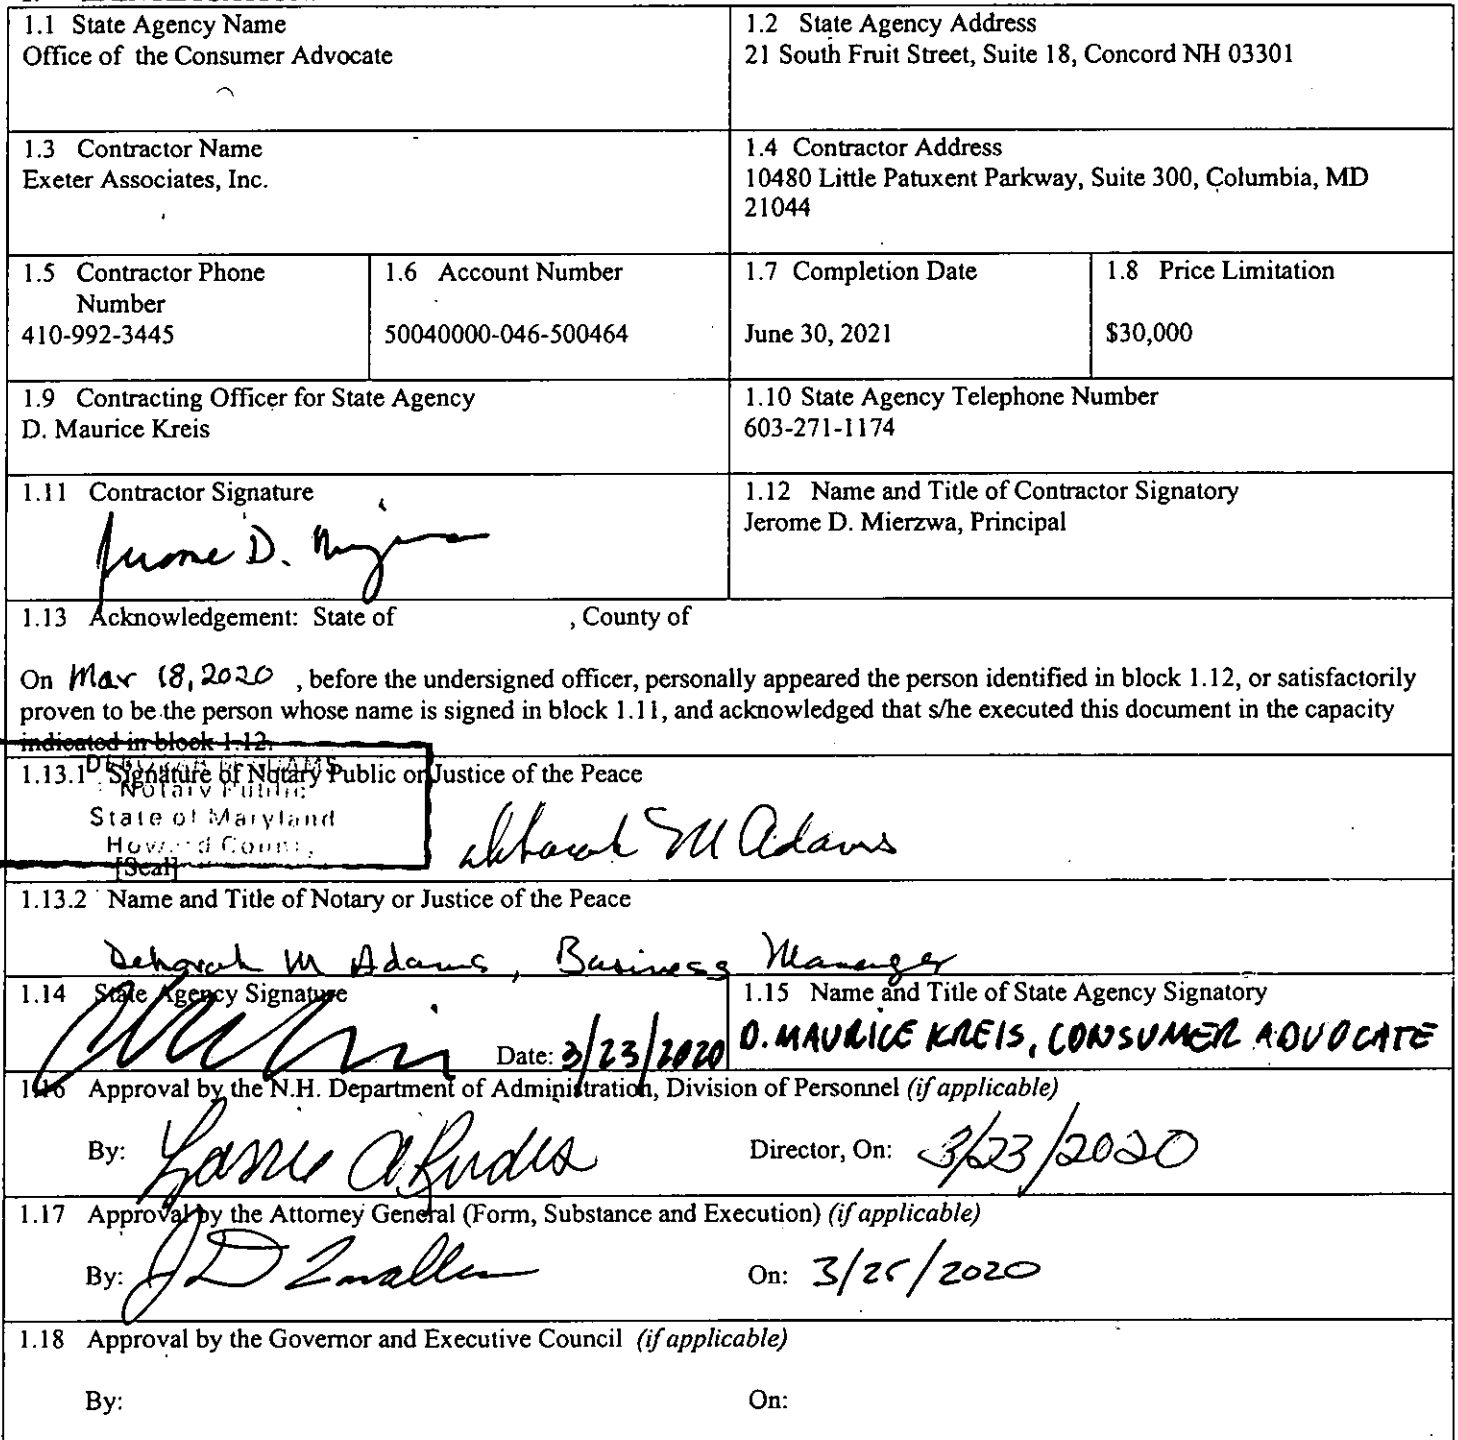 1.1 State Agency Name
Office of the Consumer Advocate
1.2 State Agency Address
21 South Fruit Street, Suite 18, Concord NH 03301
1.3 Contractor Name
Exeter Associates, Inc.
1.4 Contractor Address
10480 Little Patuxent Parkway, Suite 300, Columbia, MD
21044
1.5 Contractor Phone
Number
410-992-3445
1.6 Account Number
50040000-046-500464
1.7 Completion Date
June 30, 2021
1.8 Price Limitation
$30,000
1.9 Contracting Officer for State Agency
D. Maurice Kreis
1.10 State Agency Telephone Number
603-271-1174
1.11 Contractor Signature
Jerome D.
1.12 Name and Title of Contractor Signatory
Jerome D. Mierzwa, Principal
1.13 Acknowledgement: State of , County of
On Mar 18, 2020 , before the undersigned officer, personally appeared the person identified in block 1.12, or satisfactorily
proven to be the person whose name is signed in block 1.11, and acknowledged that s/he executed this document in the capacity
indicated in block 1.12.
1.13.1 Signature of Notary Public or Justice of the Peace
Notary Public
State of Maryland
Howard County
[Seal]
Deborah M Adams
1.13.2 Name and Title of Notary or Justice of the Peace
Deborah M Adams, Business Manager
1.14 State Agency Signature
Date: 3/23/2020
1.15 Name and Title of State Agency Signatory
D. MAURICE KREIS, CONSUMER ADVOCATE
1.16 Approval by the N.H. Department of Administration, Division of Personnel (if applicable)
By:
Director, On: 3/23/2020
1.17 Approval by the Attorney General (Form, Substance and Execution) (if applicable)
By:
On: 3/25/2020
1.18 Approval by the Governor and Executive Council (if applicable)
By:
On: